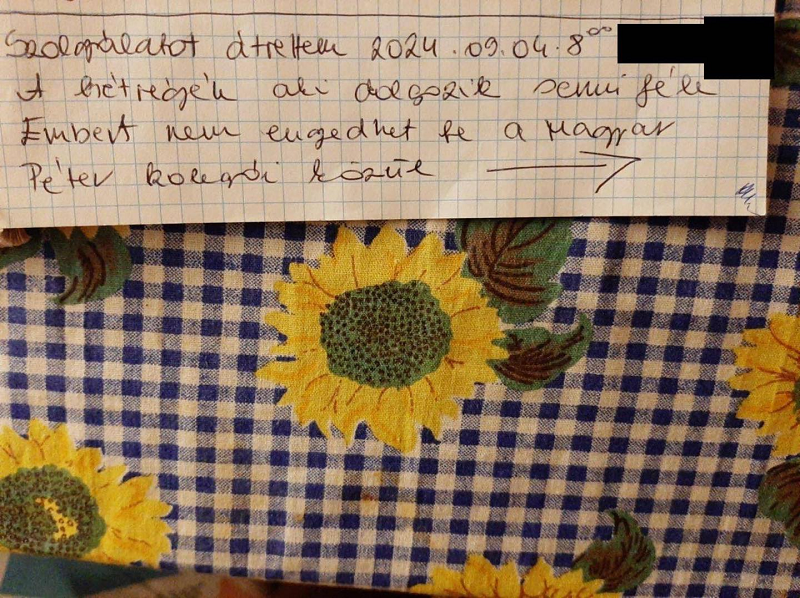 Szolgálatot átvettem 2024.09.04. 8⁰⁰
A hétvégén aki dolgozik semmi féle
Embert nem engedhet be a Magyar
Péter kollégái közül →